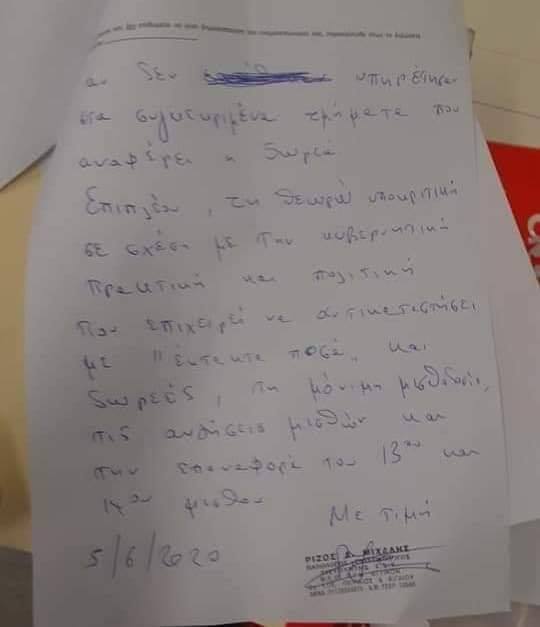 αν δεν υπηρέτησα
στα συγκεκριμένα τμήματα που
αναφέρει η δωρεά
Επιπλέον, τη θεωρώ υποκριτική
σε σχέση με την κυβερνητική
πρακτική και πολιτική
που επιχειρεί να αντικαταστήσει
με "έκτακτα ποσά" και
δωρεές, τη μόνιμη μισθοδοσία,
τις αυξήσεις μισθών και
την επαναφορά του 13ου και
14ου μισθού
Με τιμή
5/6/2020
ΡΙΖΟΣ Σ. ΜΙΧΑΛΗΣ